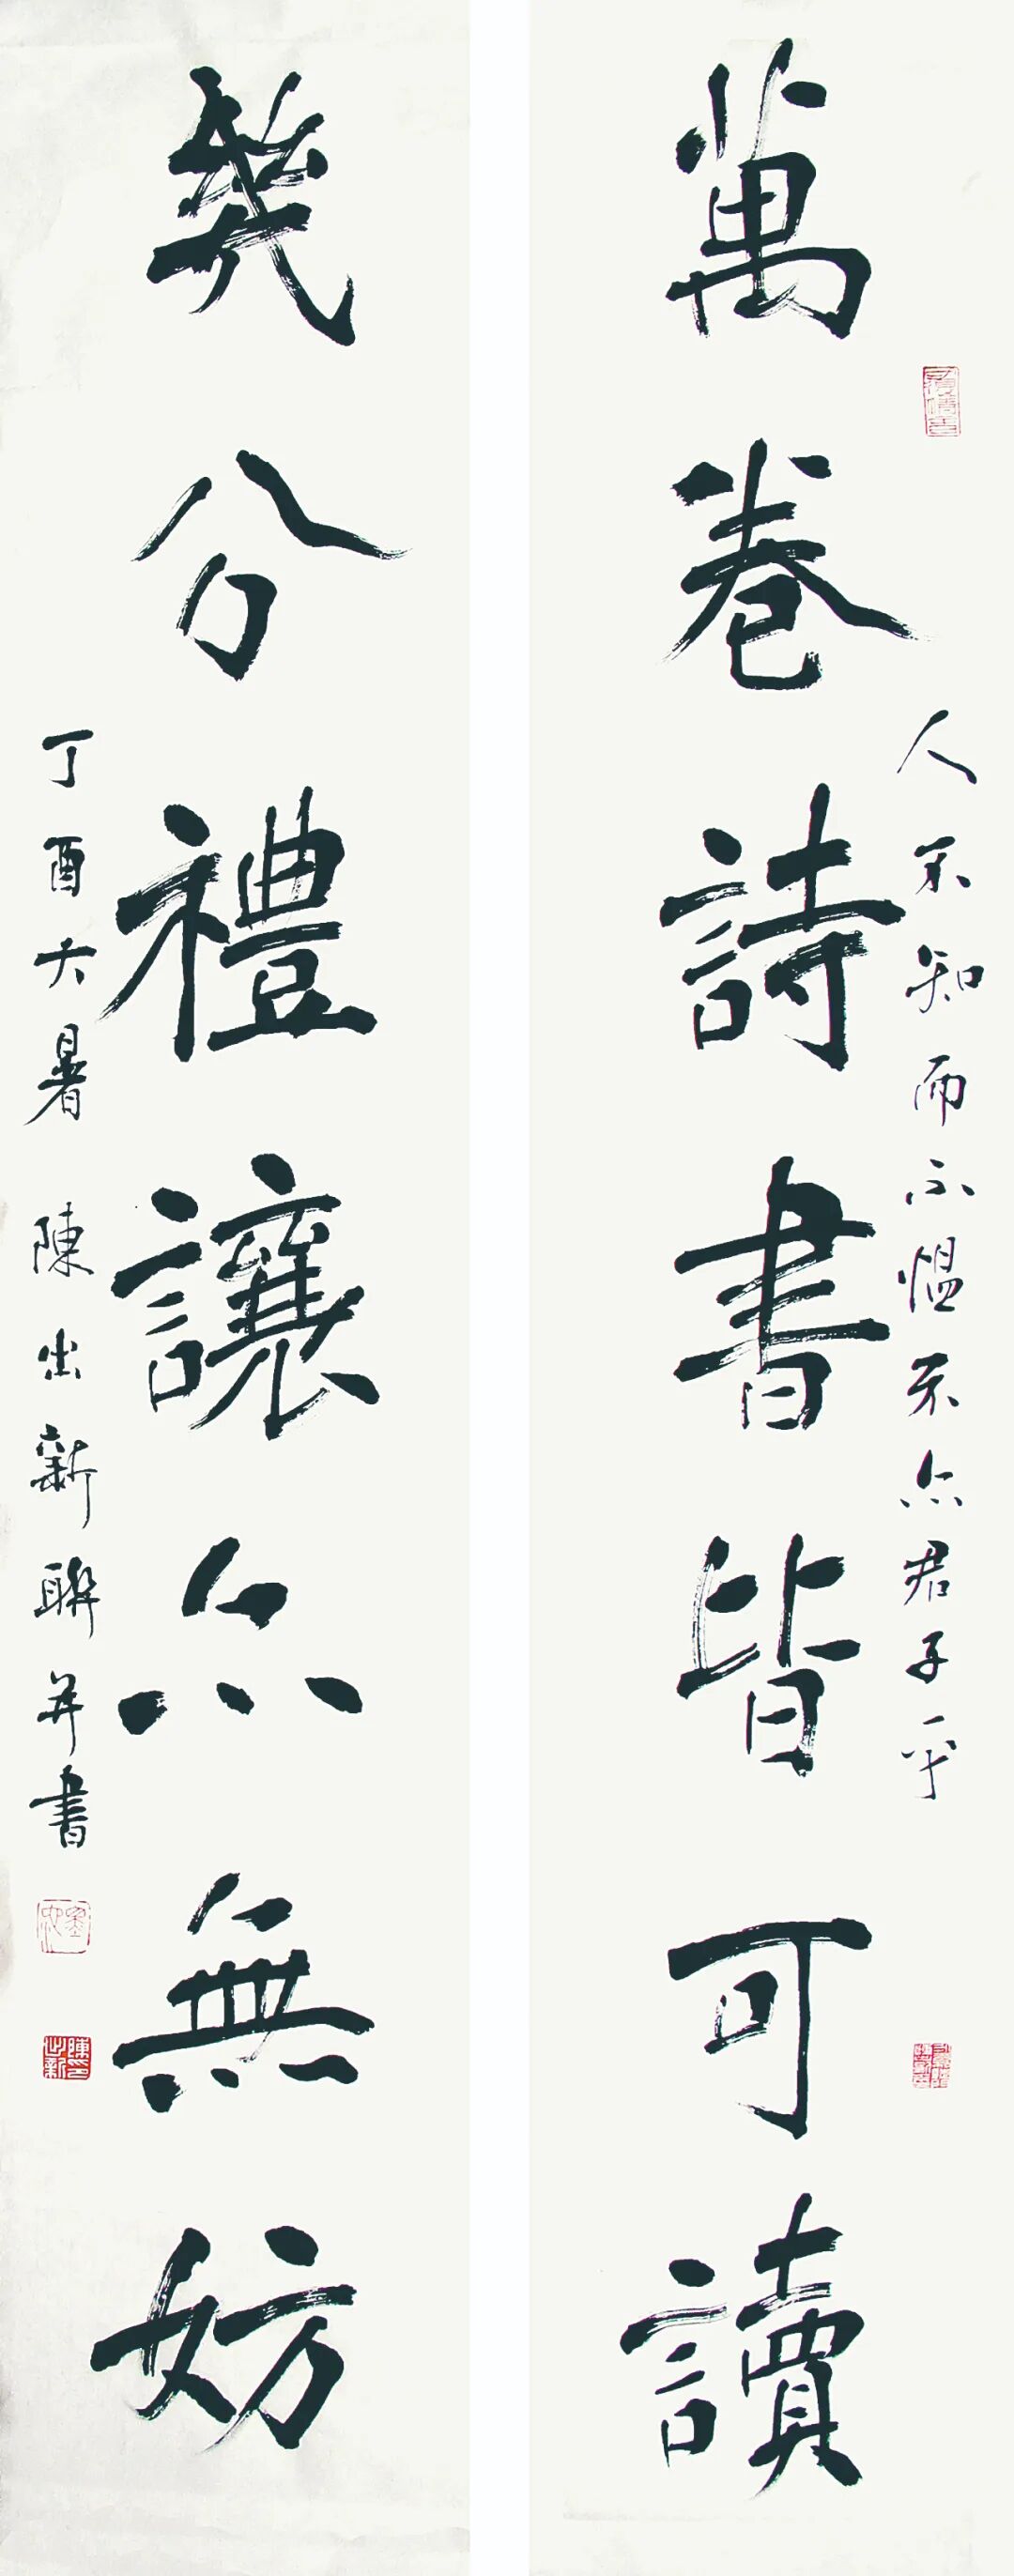 人不知而不慍不亦君子乎
萬卷詩書皆可讀
幾分禮讓亦無妨
丁酉大暑 陳出新聯并書
陳印出新